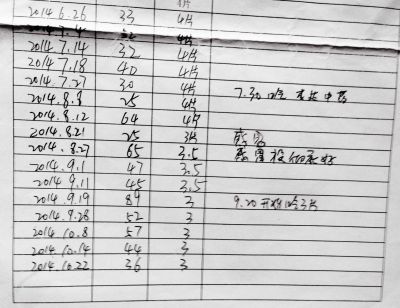 2014.6.26 33 4片
2014.7.14 32 4片
2014.7.18 40 4片
2014.7.27 30 4片 7.30吃
2014.8.8 25 4片
2014.8.12 64 4片
2014.8.21 25 3片
2014.8.27 65 3.5
2014.9.1 47 3.5
2014.9.11 45 3.5
2014.9.19 89 3 9.20开始吃3片
2014.9.28 52 3
2014.10.8 57 3
2014.10.14 44 3
2014.10.22 36 3